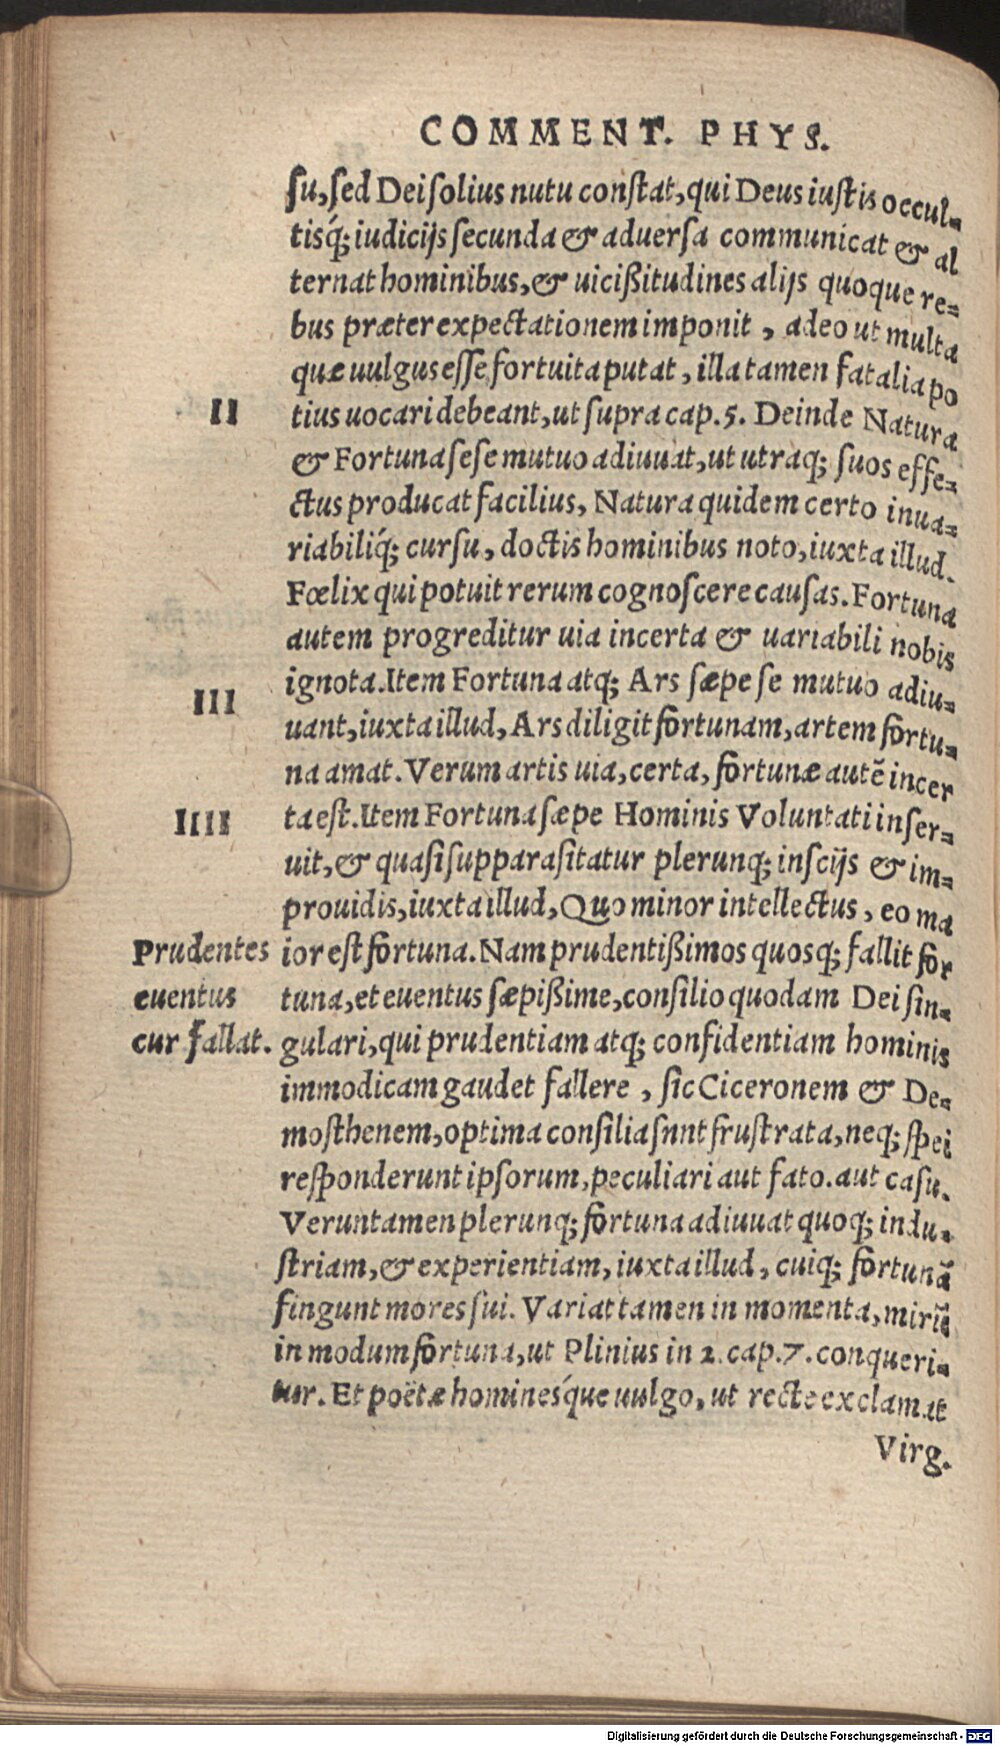 COMMENT. PHYS.
su, sed Dei solius nutu constat, qui Deus iustis occul-
tisq́; iudicijs secunda & aduersa communicat & al
ternat hominibus, & uicißitudines alijs quoque re-
bus præter expectationem imponit, adeo ut multa
quæ uulgus esse fortuita putat, illa tamen fatalia po
II
tius uocari debeant, ut supra cap. 5. Deinde Natura
& Fortuna sese mutuo adiuuat, ut utraq; suos effe-
ctus producat facilius, Natura quidem certo inua-
riabiliq́; cursu, doctis hominibus noto, iuxta illud.
Fœlix qui potuit rerum cognoscere causas. Fortuna
autem progreditur uia incerta & uariabili nobis
III
ignota. Item Fortuna atq; Ars sæpe se mutuo adiu-
uant, iuxta illud, Ars diligit fortunam, artem fortu-
na amat. Verum artis uia, certa, fortunæ autē incer
IIII
ta est. Item Fortuna sæpe Hominis Voluntati inser-
uit, & quasi supparasitatur plerunq; inscijs & im-
prouidis, iuxta illud, Quo minor intellectus, eo ma
Prudentes
euentus
cur fallat.
ior est fortuna. Nam prudentißimos quosq; fallit for
tuna, et euentus sæpißime, consilio quodam Dei sin-
gulari, qui prudentiam atq; confidentiam hominis
immodicam gaudet fallere, sic Ciceronem & De-
mosthenem, optima consilia snnt frustrata, neq; spei
responderunt ipsorum, peculiari aut fato. aut casu.
Veruntamen plerunq; fortuna adiuuat quoq; indu-
striam, & experientiam, iuxta illud, cuiq; fortunã
fingunt mores sui. Variat tamen in momenta, mirũ
in modum fortuna, ut Plinius in 2. cap. 7. conqueri-
tur. Et poëtæ hominesq́ue uulgo, ut recte exclamat
Virg.
Digitalisierung gefördert durch die Deutsche Forschungsgemeinschaft - DFG